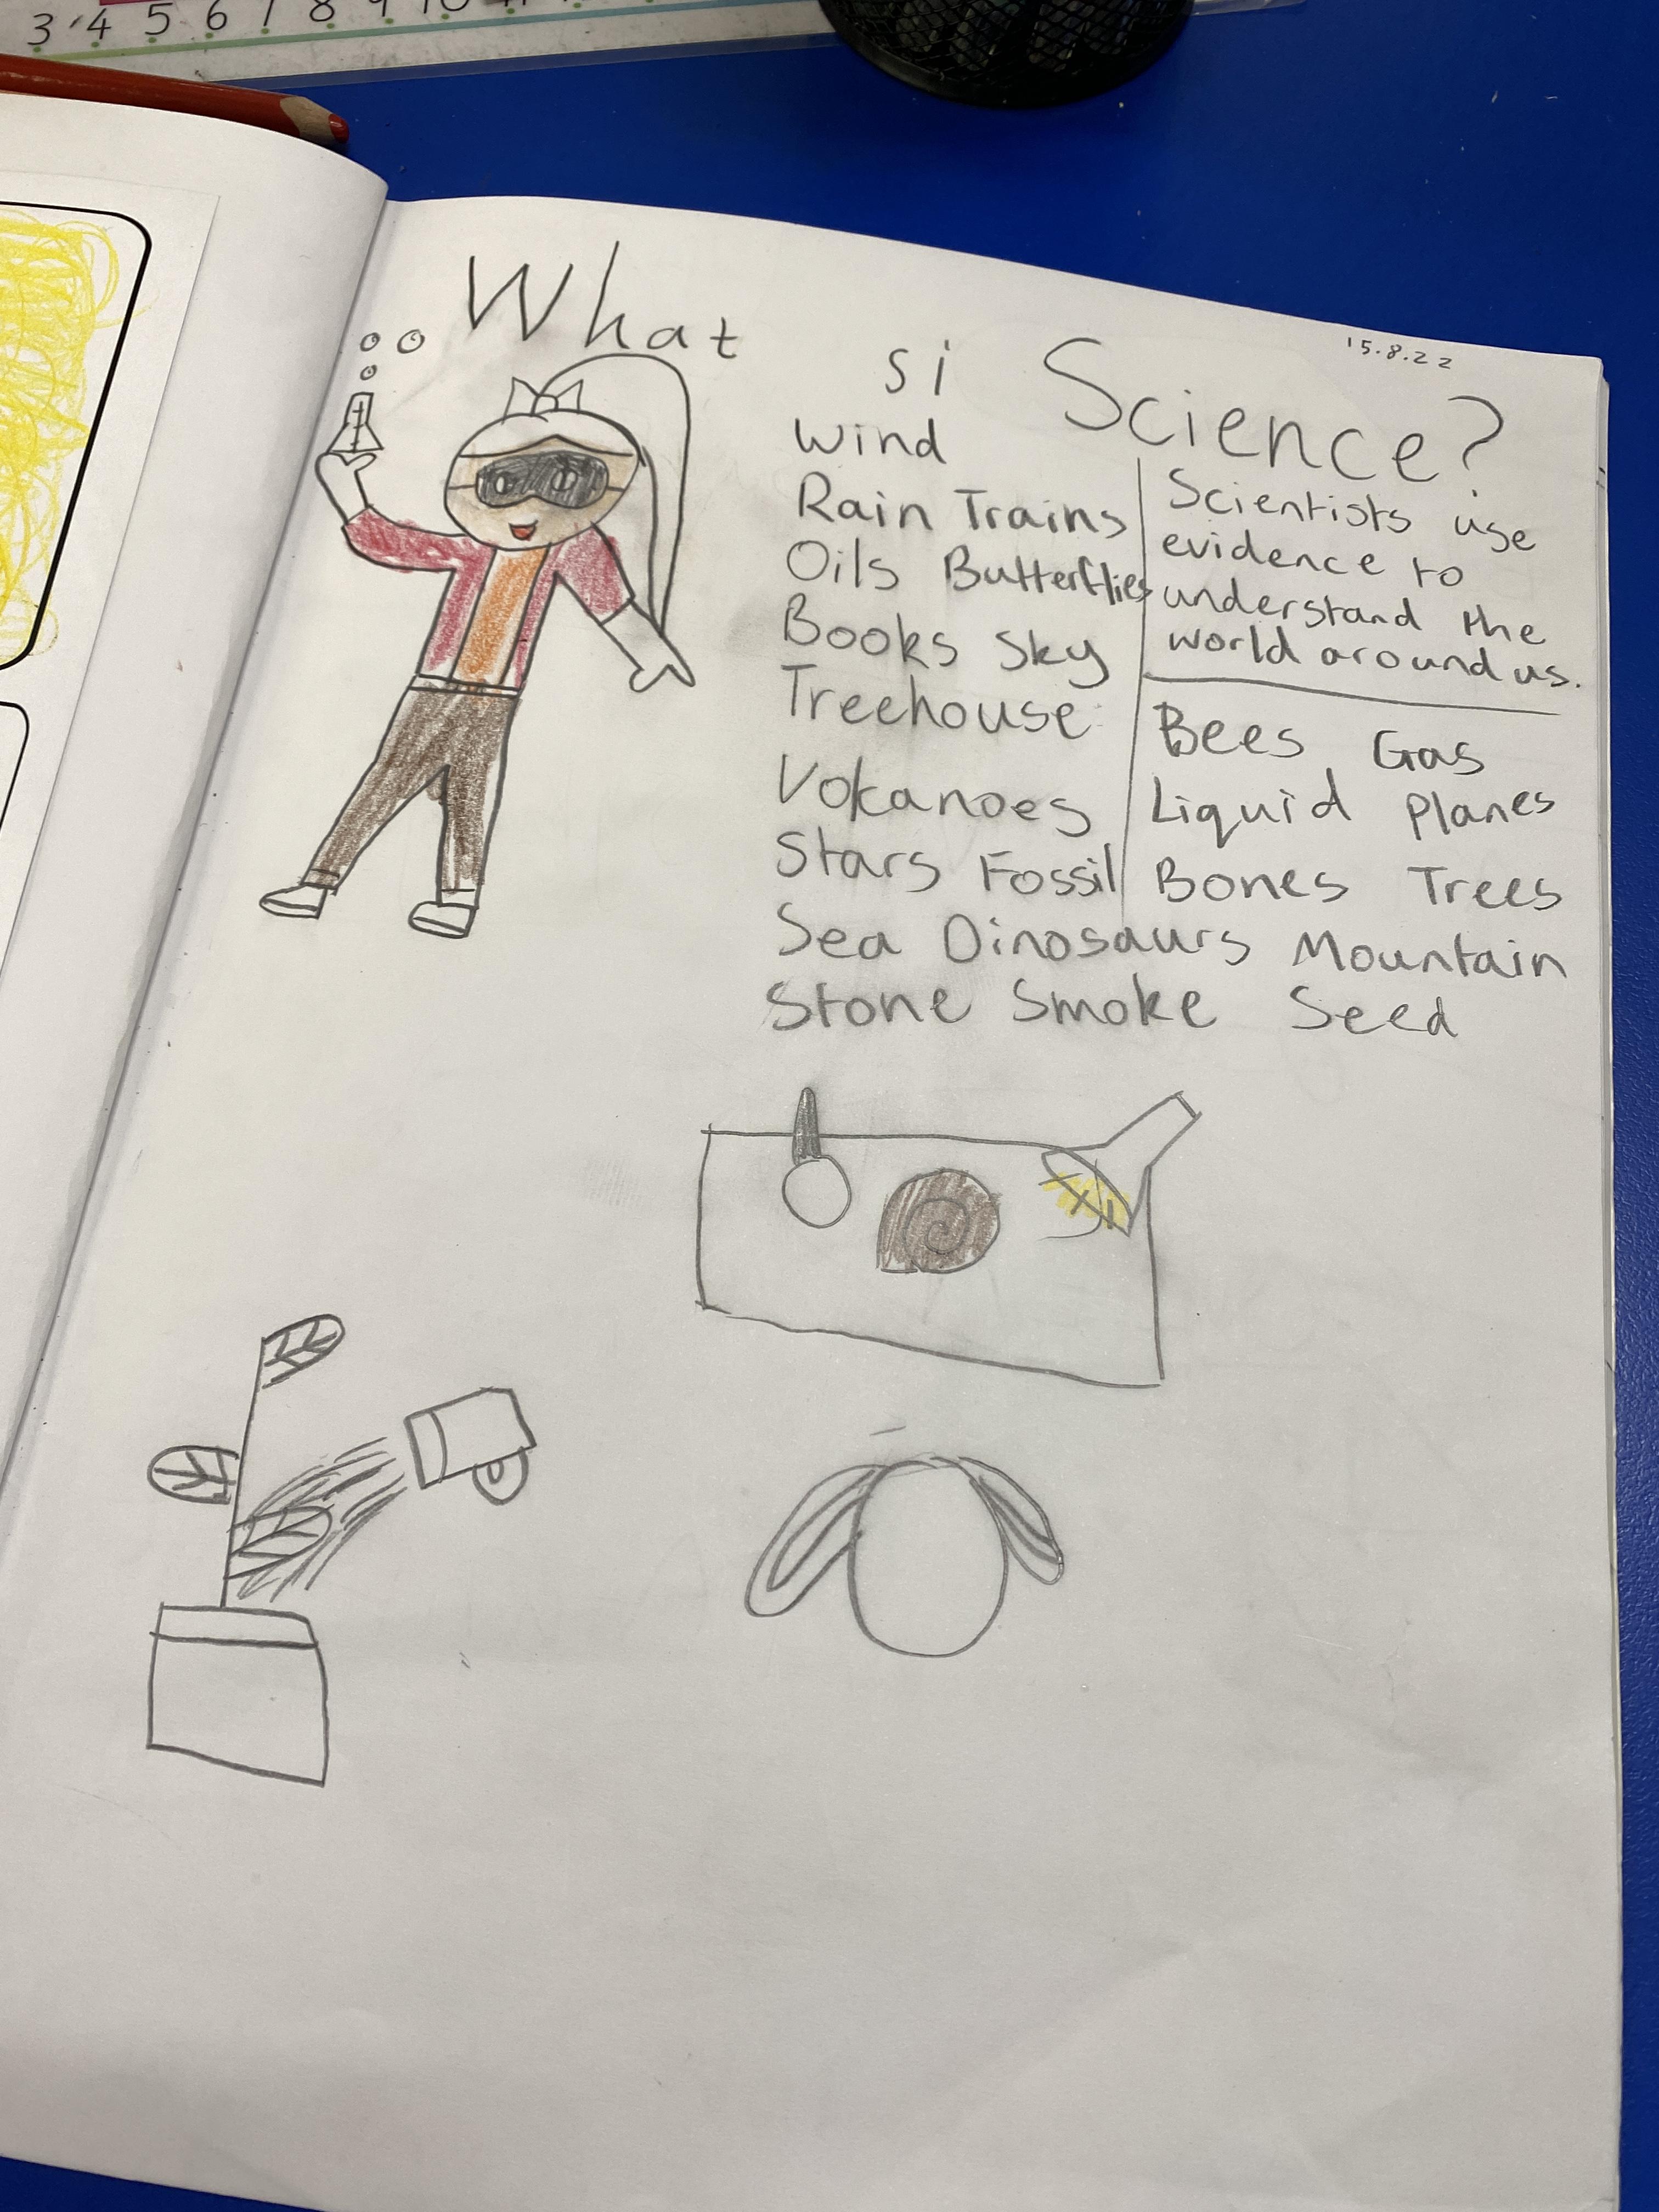 3 4 5 6 7 8 9 10
What si Science?
15.8.22
Wind
Rain Trains
Oils Butterflies
Books Sky
Treehouse
Volcanoes
Stars Fossil
Scientists use
evidence to
understand the
world around us.
Bees Gas
Liquid Planes
Bones Trees
Sea Dinosaurs Mountain
Stone Smoke Seed